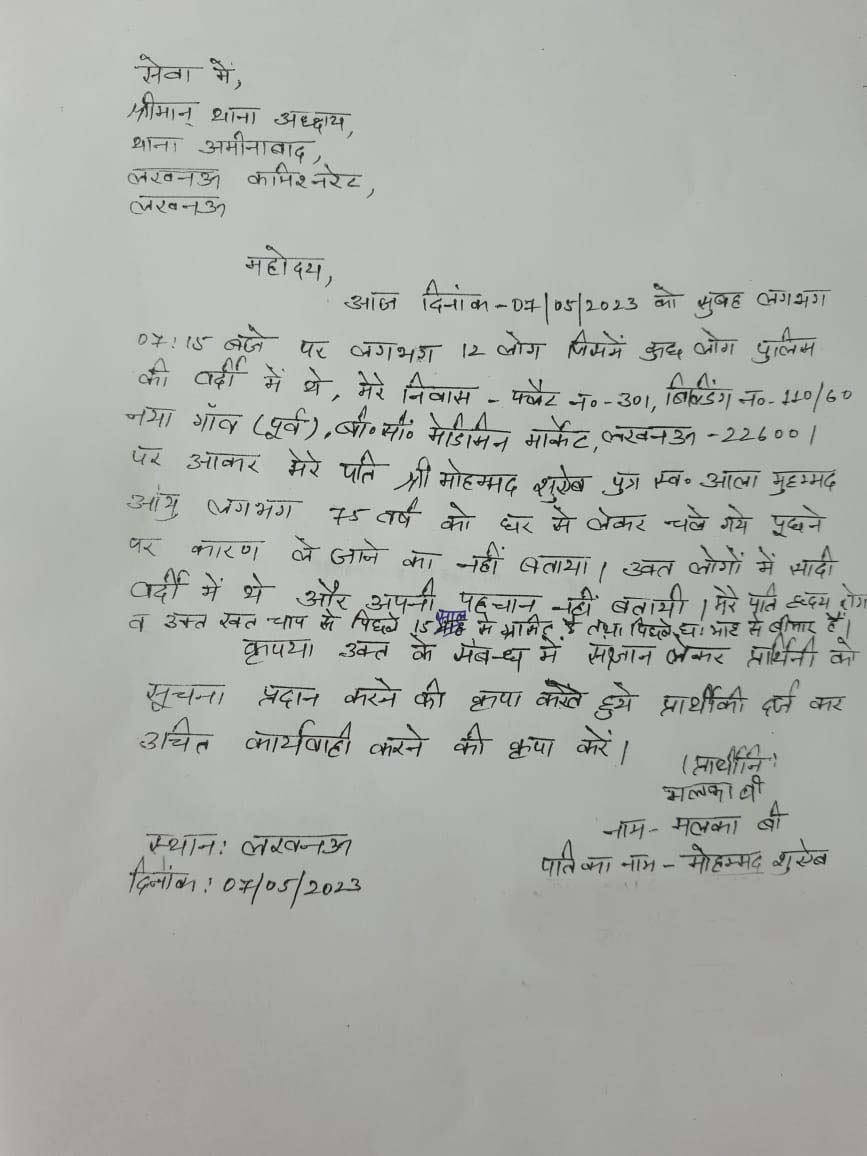 सेवा में,
श्रीमान् थाना अध्क्षय,
थाना अमीनाबाद,
लखनऊ कमिश्नरेट,
लखनऊ
महोदय,
आज दिनांक-07/05/2023 को सुबह लगभग
07:15 बजे पर लगभग 12 लोग जिसमें कुछ लोग पुलिस
की वर्दी में थे, मेरे निवास - फ्लैट न०-301, बिल्डिंग न०-110/60
नया गाँव (पूर्व), बी०सी० मेडीसिन मार्केट, लखनऊ-226001
पर आकर मेरे पति श्री मोहम्मद शुऐब पुत्र स्व० आला मुहम्मद
आयु लगभग 75 वर्ष को घर से लेकर चले गये पूछने
पर कारण ले जाने का नहीं बताया। उक्त लोगों में सादी
वर्दी में थे और अपनी पहचान नहीं बतायी। मेरे पति हृदय रोग
व उक्त रक्त चाप से पिछले 15 साल से ग्रसित है तथा पिछले छः माह से बीमार हैं।
कृपया उक्त के संबन्ध में संज्ञान लेकर प्रार्थिनी को
सूचना प्रदान करने की कृपा करते हुये प्रार्थीकी दर्ज कर
उचित कार्यवाही करने की कृपा करें।
(प्रार्थीनि)
मलका बी
नाम - मलका बी
पति का नाम - मोहम्मद शुऐब
स्थान: लखनऊ
दिनांक: 07/05/2023